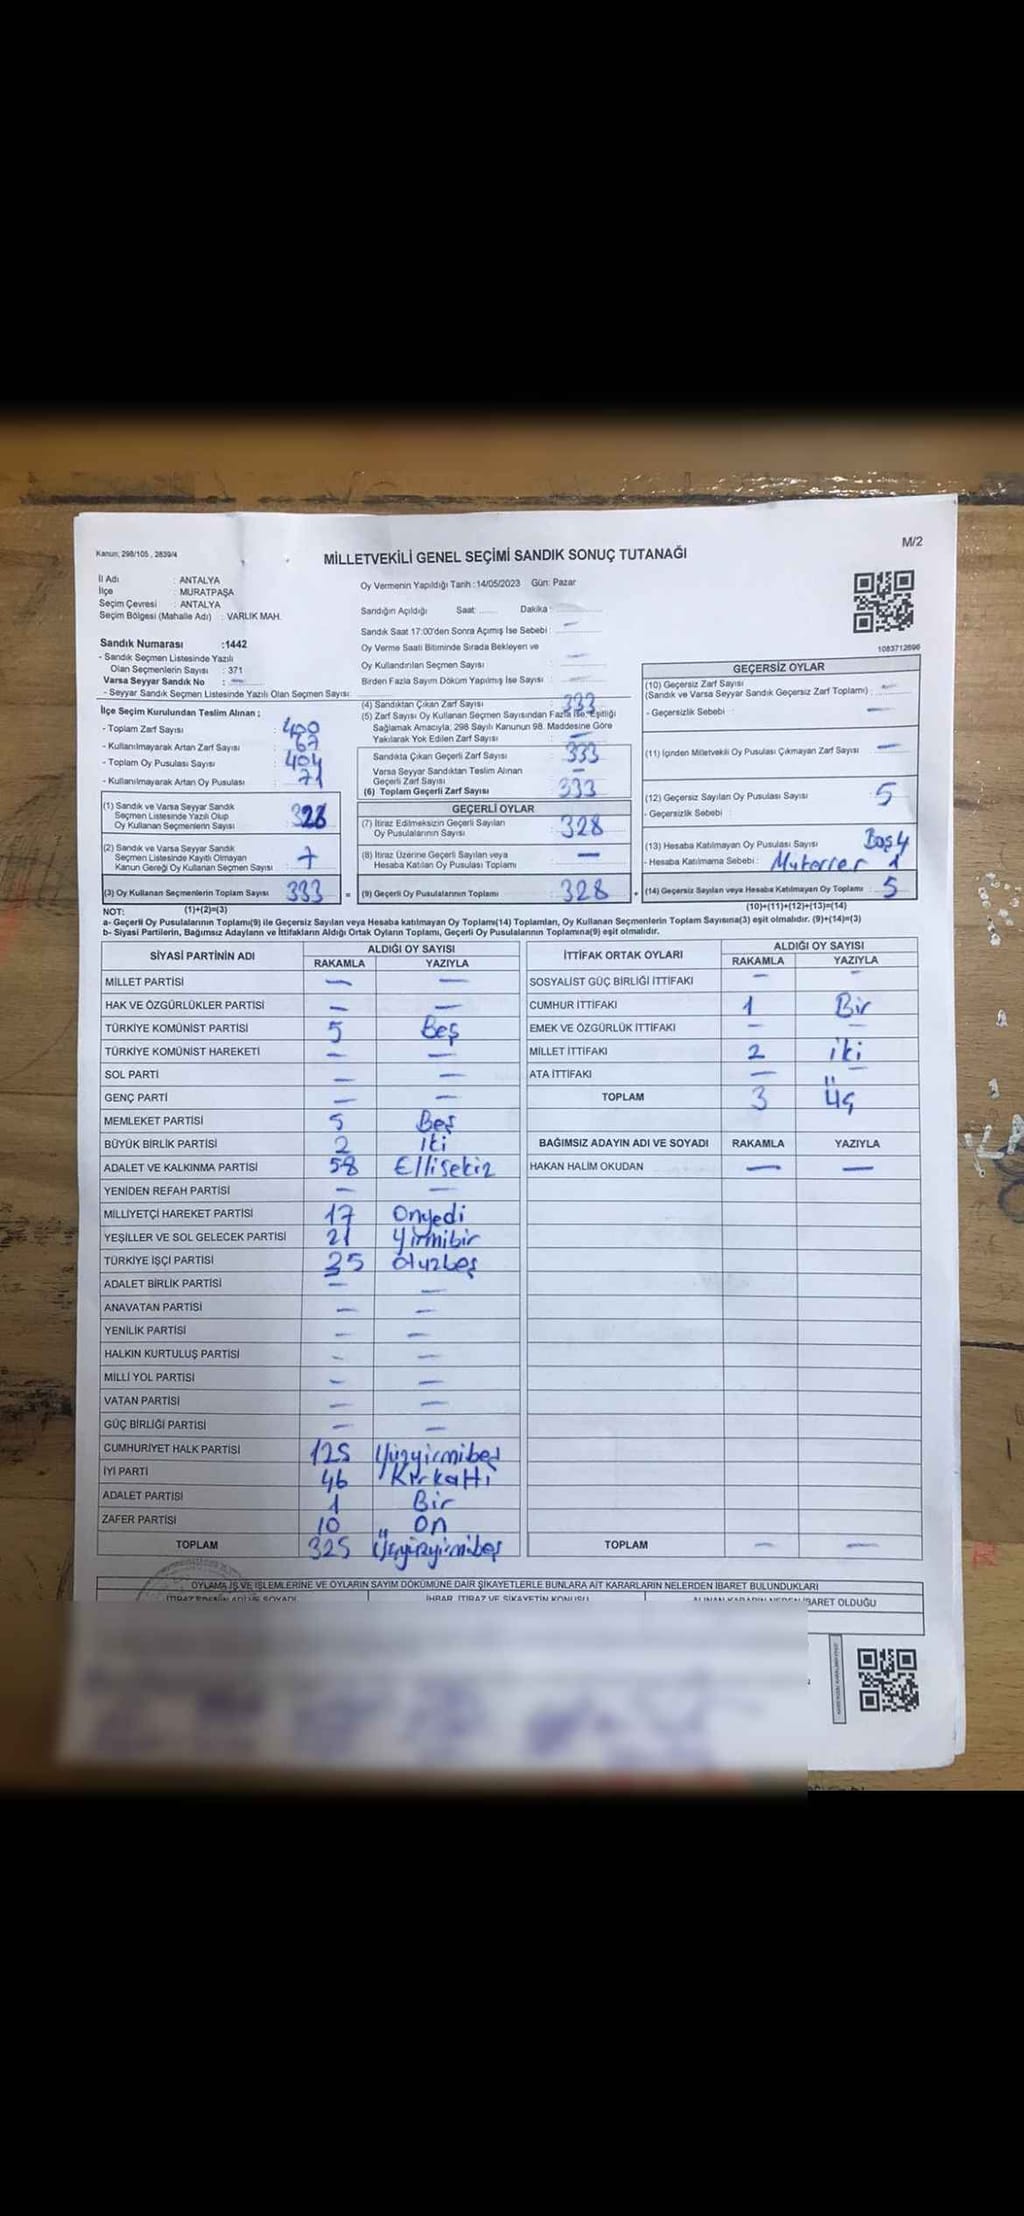 Kanun, 298/105 , 2839/4
MİLLETVEKİLİ GENEL SEÇİMİ SANDIK SONUÇ TUTANAĞI
M/2
İl Adı : ANTALYA
İlçe : MURATPAŞA
Seçim Çevresi : ANTALYA
Seçim Bölgesi (Mahalle Adı) : VARLIK MAH.
Oy Vermenin Yapıldığı Tarih :14/05/2023 Gün: Pazar
Sandığın Açıldığı Saat: ...... Dakika :
Sandık Saat 17:00'den Sonra Açımış İse Sebebi : —
Oy Verme Saati Bitiminde Sırada Bekleyen ve
Oy Kullandırılan Seçmen Sayısı —
Birden Fazla Sayım Döküm Yapılmış İse Sayısı : —
1083712696
Sandık Numarası :1442
- Sandık Seçmen Listesinde Yazılı
Olan Seçmenlerin Sayısı : 371
Varsa Seyyar Sandık No : —
- Seyyar Sandık Seçmen Listesinde Yazılı Olan Seçmen Sayısı:
İlçe Seçim Kurulundan Teslim Alınan ;
- Toplam Zarf Sayısı : 400
- Kullanılmayarak Artan Zarf Sayısı : 67
- Toplam Oy Pusulası Sayısı : 404
- Kullanılmayarak Artan Oy Pusulası : 71
(1) Sandık ve Varsa Seyyar Sandık
Seçmen Listesinde Yazılı Olup
Oy Kullanan Seçmenlerin Sayısı
(2) Sandık ve Varsa Seyyar Sandık
Seçmen Listesinde Kayıtlı Olmayan
Kanun Gereği Oy Kullanan Seçmen Sayısı
(3) Oy Kullanan Seçmenlerin Toplam Sayısı 333 =
(1)+(2)=(3)
(4) Sandıktan Çıkan Zarf Sayısı : 333
(5) Zarf Sayısı Oy Kullanan Seçmen Sayısından Fazla İse, Eşitliği
Sağlamak Amacıyla, 298 Sayılı Kanunun 98. Maddesine Göre
Yakılarak Yok Edilen Zarf Sayısı : —
Sandıkta Çıkan Geçerli Zarf Sayısı : 333
Varsa Seyyar Sandıktan Teslim Alınan
Geçerli Zarf Sayısı : —
(6) Toplam Geçerli Zarf Sayısı : 333
GEÇERLİ OYLAR
(7) İtiraz Edilmeksizin Geçerli Sayılan
Oy Pusulalarının Sayısı : 328
(8) İtiraz Üzerine Geçerli Sayılan veya
Hesaba Katılan Oy Pusulası Toplamı : —
(9) Geçerli Oy Pusulalarının Toplamı : 328 +
GEÇERSİZ OYLAR
(10) Geçersiz Zarf Sayısı
(Sandık ve Varsa Seyyar Sandık Geçersiz Zarf Toplamı) : —
- Geçersizlik Sebebi : —
(11) İçinden Milletvekili Oy Pusulası Çıkmayan Zarf Sayısı : —
(12) Geçersiz Sayılan Oy Pusulası Sayısı : 5
- Geçersizlik Sebebi :
(13) Hesaba Katılmayan Oy Pusulası Sayısı : Boş 4
- Hesaba Katılmama Sebebi : Mükerrer 1
(14) Geçersiz Sayılan veya Hesaba Katılmayan Oy Toplamı : 5
(10)+(11)+(12)+(13)=(14)
NOT:
a- Geçerli Oy Pusulalarının Toplamı(9) ile Geçersiz Sayılan veya Hesaba katılmayan Oy Toplam(14) Toplamları, Oy Kullanan Seçmenlerin Toplam Sayısına(3) eşit olmalıdır. (9)+(14)=(3)
b- Siyasi Partilerin, Bağımsız Adayların ve İttifakların Aldığı Ortak Oyların Toplamı, Geçerli Oy Pusulalarının Toplamına(9) eşit olmalıdır.
SİYASİ PARTİNİN ADI ALDIĞI OY SAYISI
RAKAMLA YAZIYLA
MİLLET PARTİSİ — —
HAK VE ÖZGÜRLÜKLER PARTİSİ — —
TÜRKİYE KOMÜNİST PARTİSİ 5 Beş
TÜRKİYE KOMÜNİST HAREKETİ — —
SOL PARTİ — —
GENÇ PARTİ — —
MEMLEKET PARTİSİ 5 Beş
BÜYÜK BİRLİK PARTİSİ 2 İki
ADALET VE KALKINMA PARTİSİ 58 Ellisekiz
YENİDEN REFAH PARTİSİ — —
MİLLİYETÇİ HAREKET PARTİSİ 17 Onyedi
YEŞİLLER VE SOL GELECEK PARTİSİ 21 Yirmibir
TÜRKİYE İŞÇİ PARTİSİ 35 Otuzbeş
ADALET BİRLİK PARTİSİ — —
ANAVATAN PARTİSİ — —
YENİLİK PARTİSİ — —
HALKIN KURTULUŞ PARTİSİ — —
MİLLİ YOL PARTİSİ — —
VATAN PARTİSİ — —
GÜÇ BİRLİĞİ PARTİSİ — —
CUMHURİYET HALK PARTİSİ 125 Yüzyirmibeş
İYİ PARTİ 46 Kırkaltı
ADALET PARTİSİ 1 Bir
ZAFER PARTİSİ 10 On
TOPLAM 325 Üçyüzyirmibeş
İTTİFAK ORTAK OYLARI ALDIĞI OY SAYISI
RAKAMLA YAZIYLA
SOSYALİST GÜÇ BİRLİĞİ İTTİFAKI — —
CUMHUR İTTİFAKI 1 Bir
EMEK VE ÖZGÜRLÜK İTTİFAKI — —
MİLLET İTTİFAKI 2 iki
ATA İTTİFAKI — —
TOPLAM 3 Üç
BAĞIMSIZ ADAYIN ADI VE SOYADI RAKAMLA YAZIYLA
HAKAN HALİM OKUDAN — —
TOPLAM — —
OYLAMA İŞ VE İŞLEMLERİNE VE OYLARIN SAYIM DÖKÜMÜNE DAİR ŞİKAYETLERLE BUNLARA AİT KARARLARIN NELERDEN İBARET BULUNDUKLARI
İHBAR, İTİRAZ VE ŞİKAYETİN KONUSU
İBARET OLDUĞU